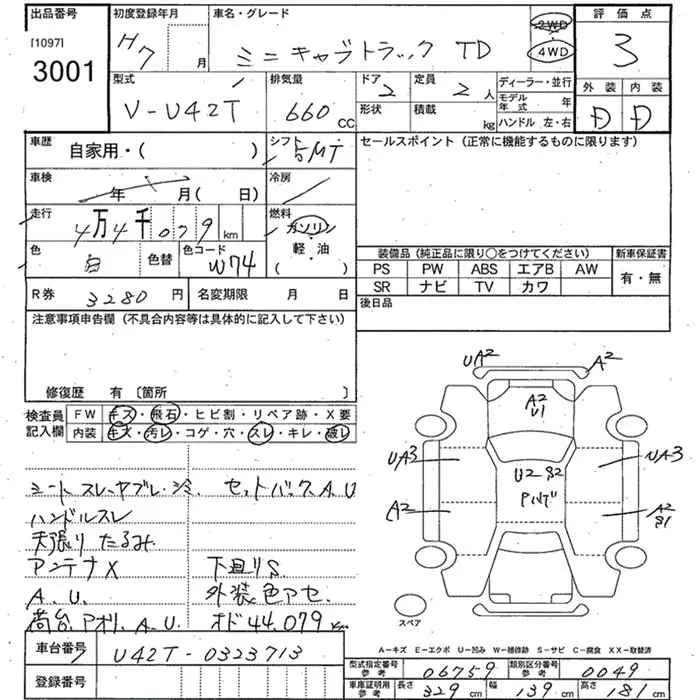 出品番号 初度登録年月 車名・グレード 評価点
[1097] H7 月 ミニキャブトラック TD 2WD 4WD 3
3001
型式 排気量 ドア 定員 ディーラー・並行 外装 内装
V-U42T 660 CC 2 2人 モデル年式 年 D D
形状 積載 kg ハンドル 左・右
車歴 自家用・( ) シフト 5MT セールスポイント (正常に機能するものに限ります)
車検 年 月( 日) 冷房
走行 4万4千079 km 燃料 ガソリン・軽油・( )
色 白 色替 色コード W74
装備品 (純正品に限り○をつけてください) 新車保証書
PS PW ABS エアB AW 有・無
SR ナビ TV カワ
R券 3280 円 名変期限 月 日 後日品
注意事項申告欄 (不具合内容等は具体的に記入して下さい)
修復歴 有 〔箇所 〕
検査員記入欄 FW キズ・飛石・ヒビ割・リペア跡・X要
内装 キズ・汚レ・コゲ・穴・スレ・キレ・破レ
シート スレ ヤブレ・シミ. セットバックA.U
ハンドルスレ
天張り たるみ
アンテナX 下廻りS
A.U. 外装色アセ.
荷台.アオリ.A.U. オド44.079km
UA2 A2
A2
U1
UA3 UA3
U2 S2
A2 A2
S1
スペア
A−キズ E−エクボ U−凹み W−補修跡 S−サビ C−腐食 XX−取替済
車台番号 U42T-0323713
登録番号
型式指定番号 参考 06759 類別区分番号 参考 0049
車庫証明用 参考 長さ 329 cm 幅 139 cm 高さ 181 cm